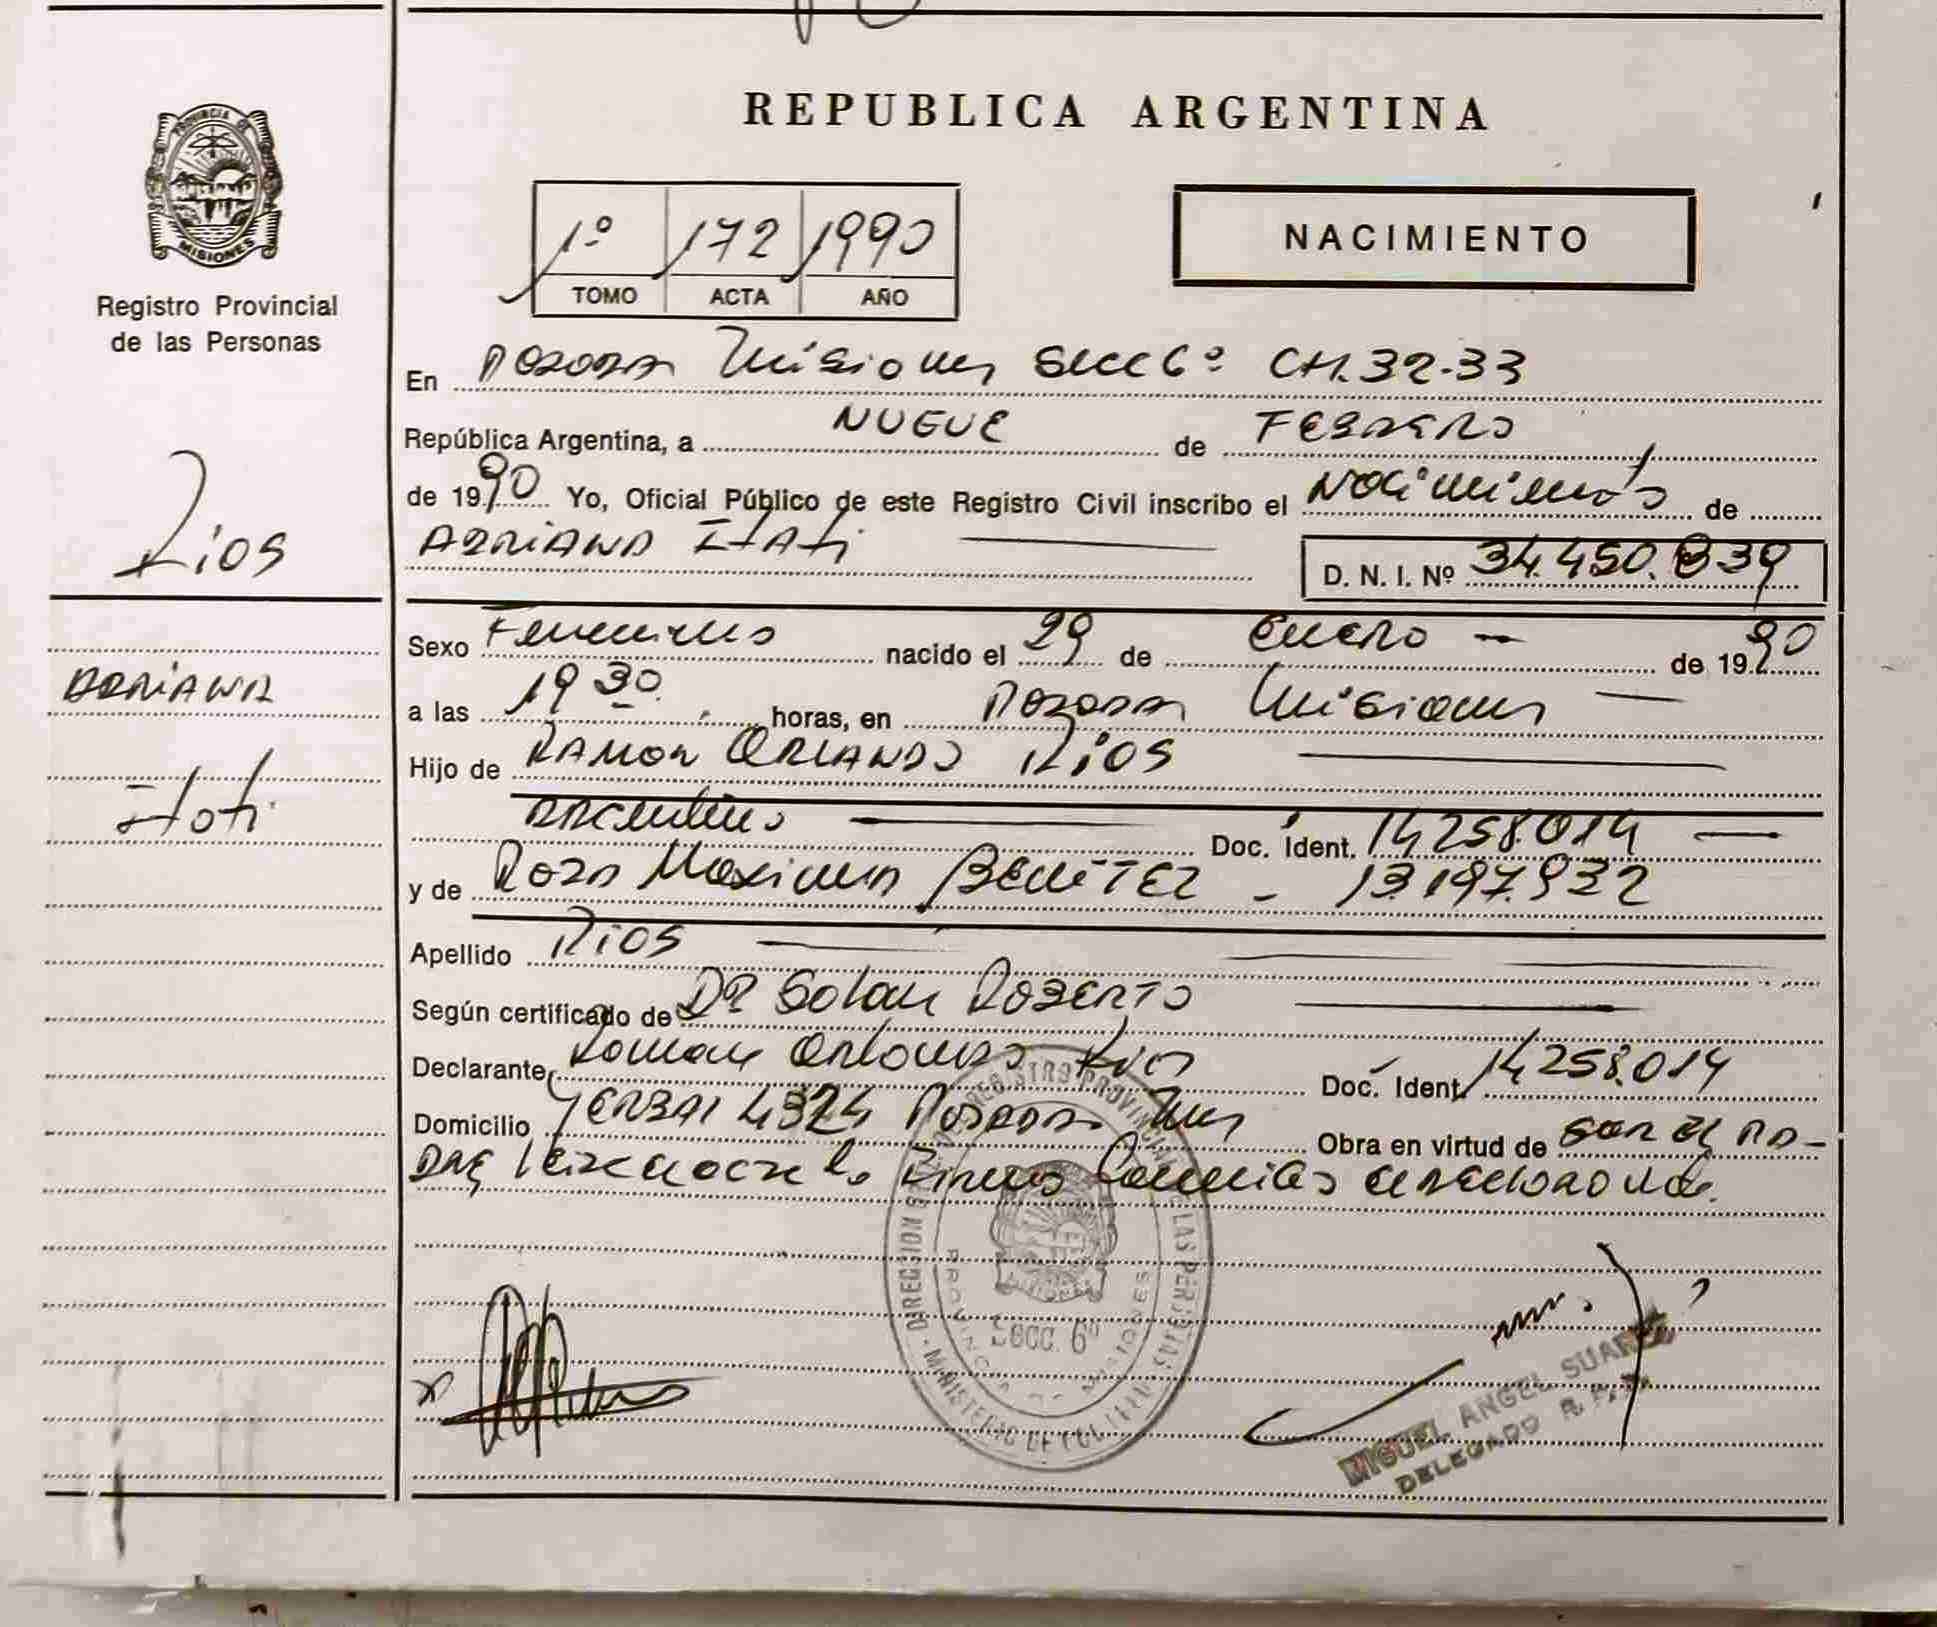 PROVINCIA DE
MISIONES
Registro Provincial
de las Personas
Rios
ADRIANA
Itati
REPUBLICA ARGENTINA
1º 172 1990
TOMO ACTA AÑO
NACIMIENTO
En Posadas Misiones Secc 6º CH. 32-33
República Argentina, a NUEVE de FEBRERO
de 1990 Yo, Oficial Público de este Registro Civil inscribo el Nacimiento de
ADRIANA ITATI D. N. I. Nº 34.450.839
Sexo Femenino nacido el 29 de Enero de 1990
a las 19 30 horas, en Posadas Misiones
Hijo de RAMON ORLANDO RIOS
argentino Doc. Ident. 14.258.014
y de Rosa Maxima BENITEZ - 13.197.932
Apellido RIOS
Según certificado de Dr Solan ROBERTO
Declarante Ramon Orlando Rios Doc. Ident. 14.258.014
Domicilio 4324 Posadas Mnes Obra en virtud de ser el PA-
DRE
DIRECCION REGISTRO PROVINCIAL DE LAS PERSONAS
MINISTERIO DE
PROVINCIA DE MISIONES
SECC. 6º
MIGUEL ANGEL SUAREZ
DELEGADO R. P. P.